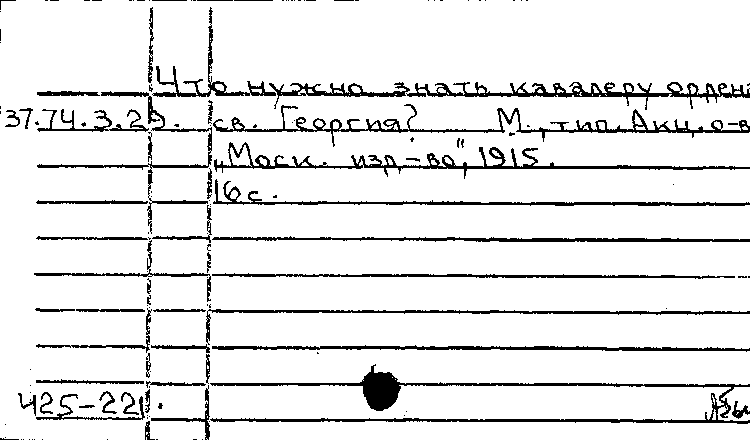 Что нужно знать кавалеру ордена
37.74.3.29. св. Георгия? М., тип. Акц. о-в
„Моск. изд-во", 1915.
16 с.
425-221.